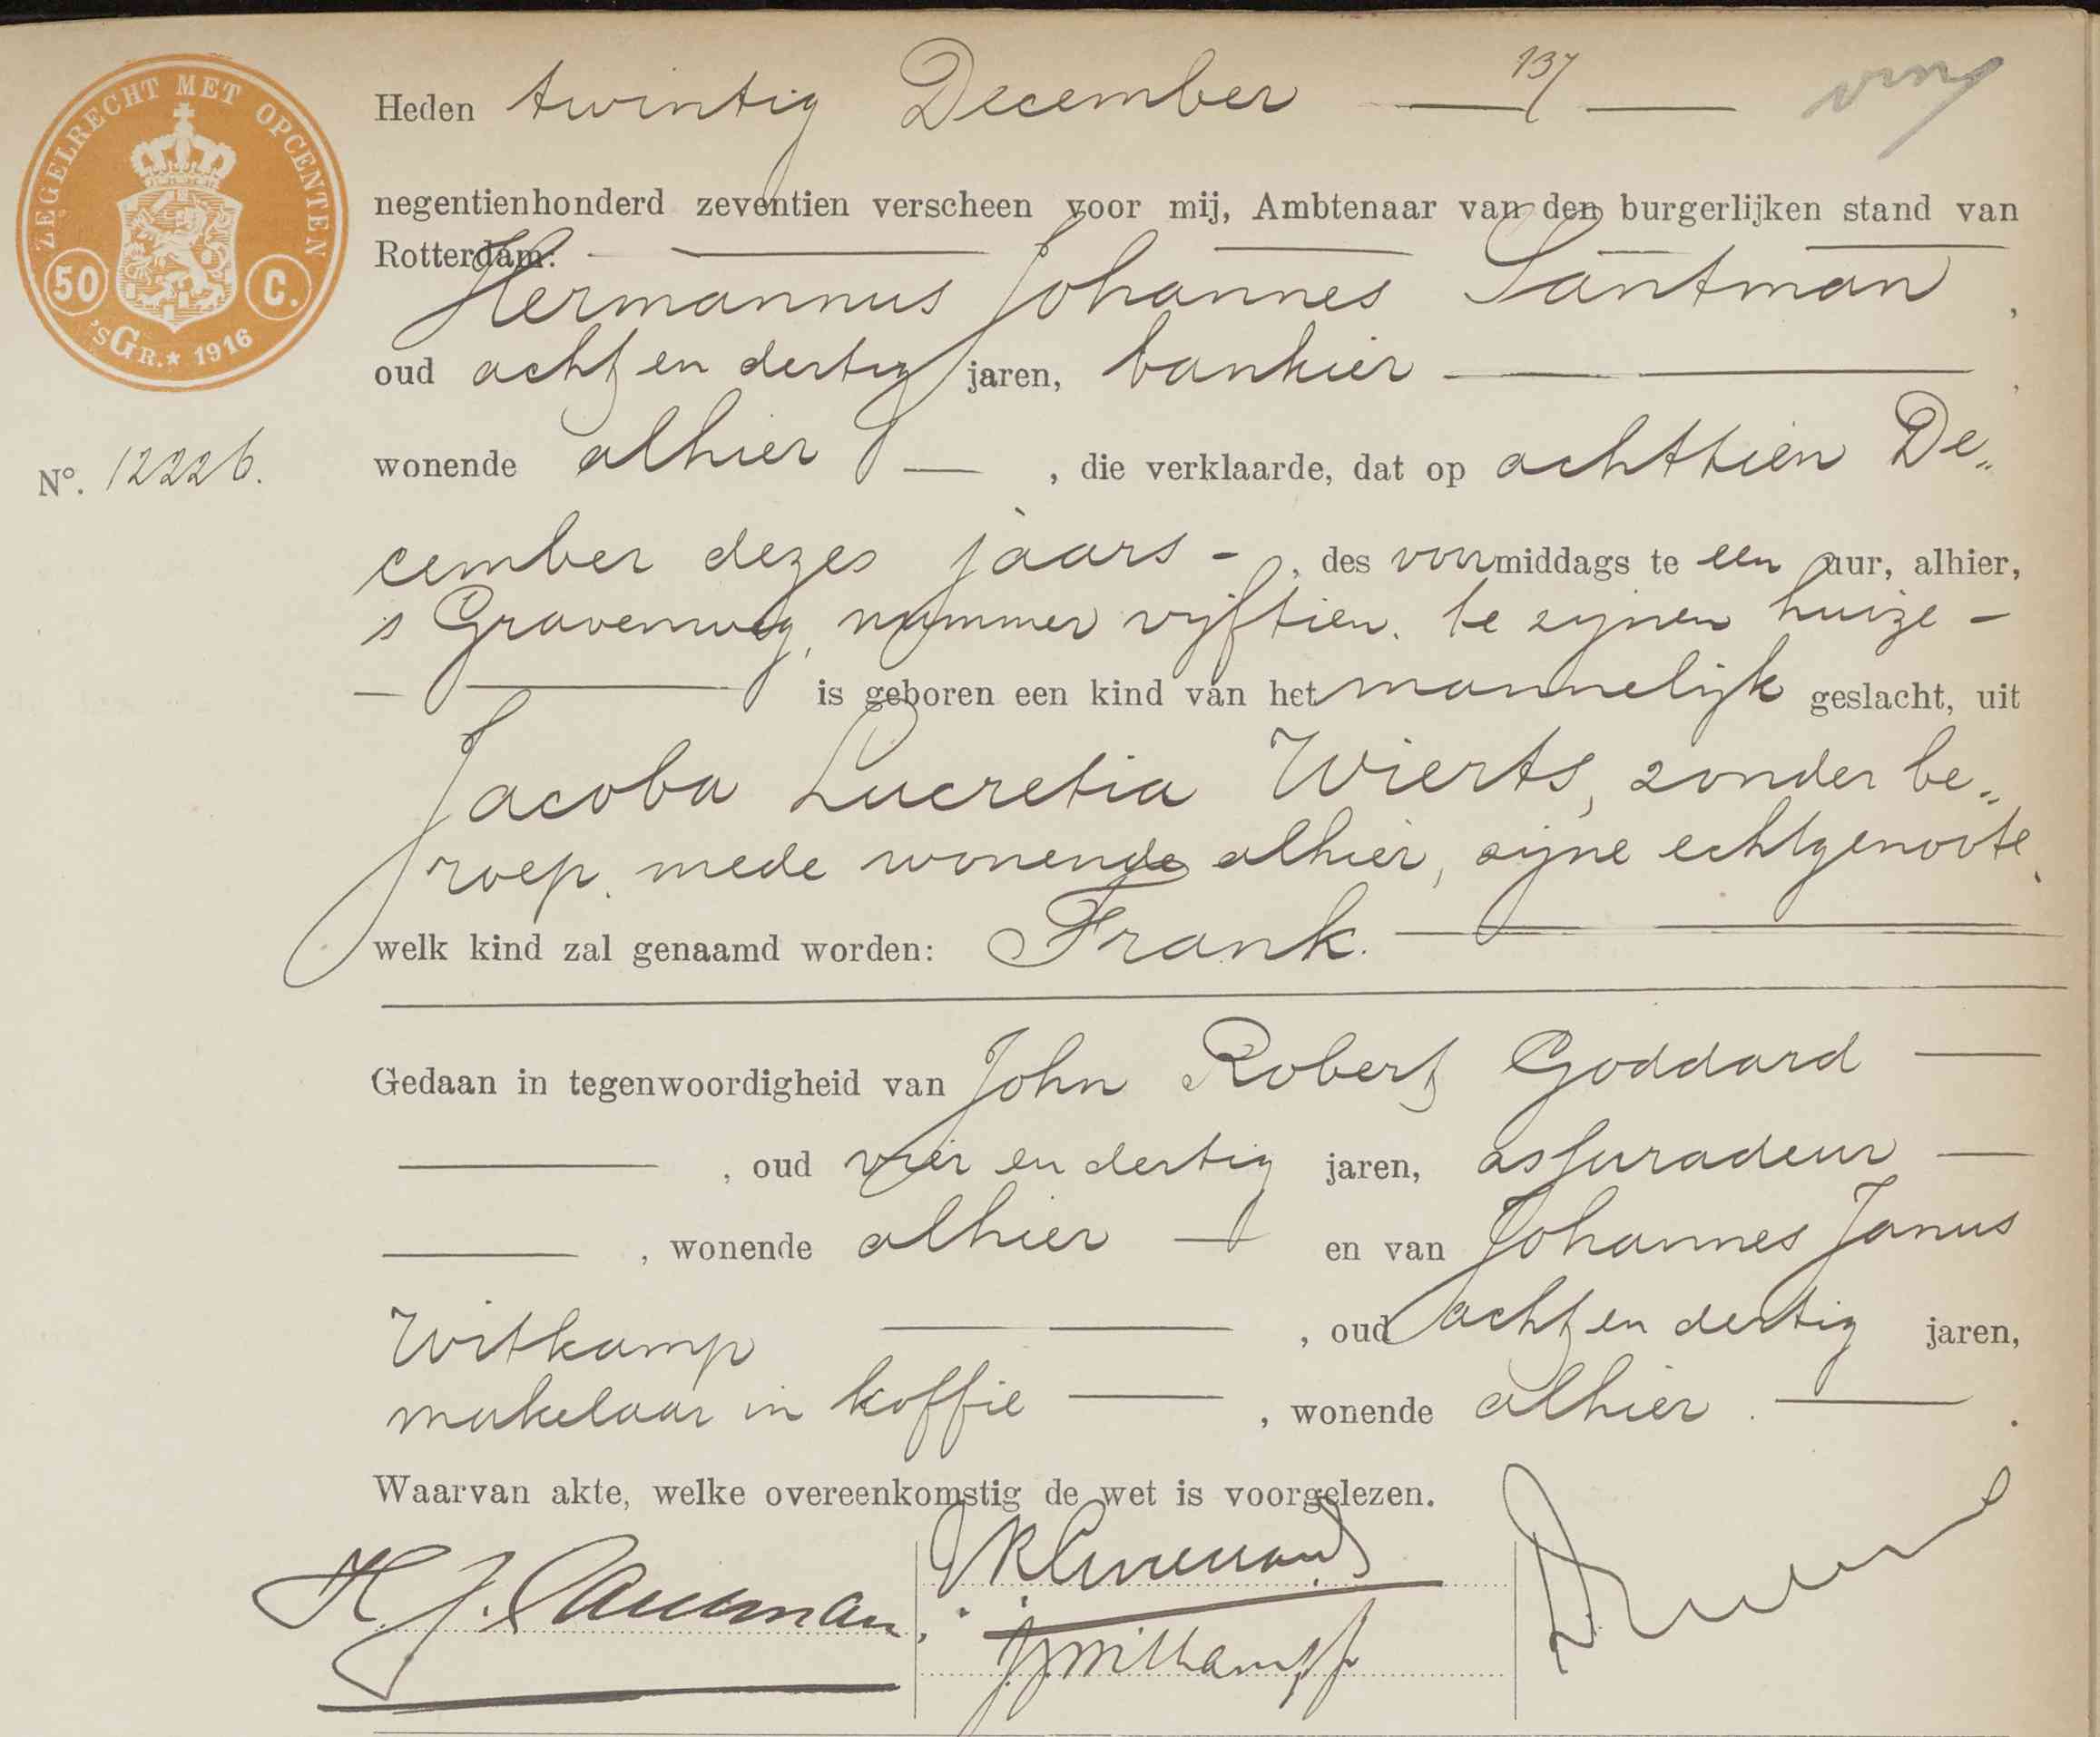 137
Heden twintig December
negentienhonderd zeventien verscheen voor mij, Ambtenaar van den burgerlijken stand van
Rotterdam:
Hermannus Johannes Santman,
oud acht en dertig jaren, bankier,
wonende alhier, die verklaarde, dat op achttien De„
cember dezes jaars, des voormiddags te een uur, alhier,
's Gravenweg, nummer vijftien. te zijnen huize
is geboren een kind van het mannelijk geslacht, uit
Jacoba Lucretia Wierts, zonder be„
roep, mede wonende alhier, zijne echtgenoote,
welk kind zal genaamd worden: Frank.
Gedaan in tegenwoordigheid van John Robert Goddard
, oud vier en dertig jaren, assuradeur
, wonende alhier en van Johannes Janus
Witkamp, oud acht en dertig jaren,
makelaar in koffie, wonende alhier.
Waarvan akte, welke overeenkomstig de wet is voorgelezen.
H. J. Santman
JJWitkamp
ZEGELRECHT MET OPCENTEN
50 C.
'SGR.★ 1916
Nº. 12226.